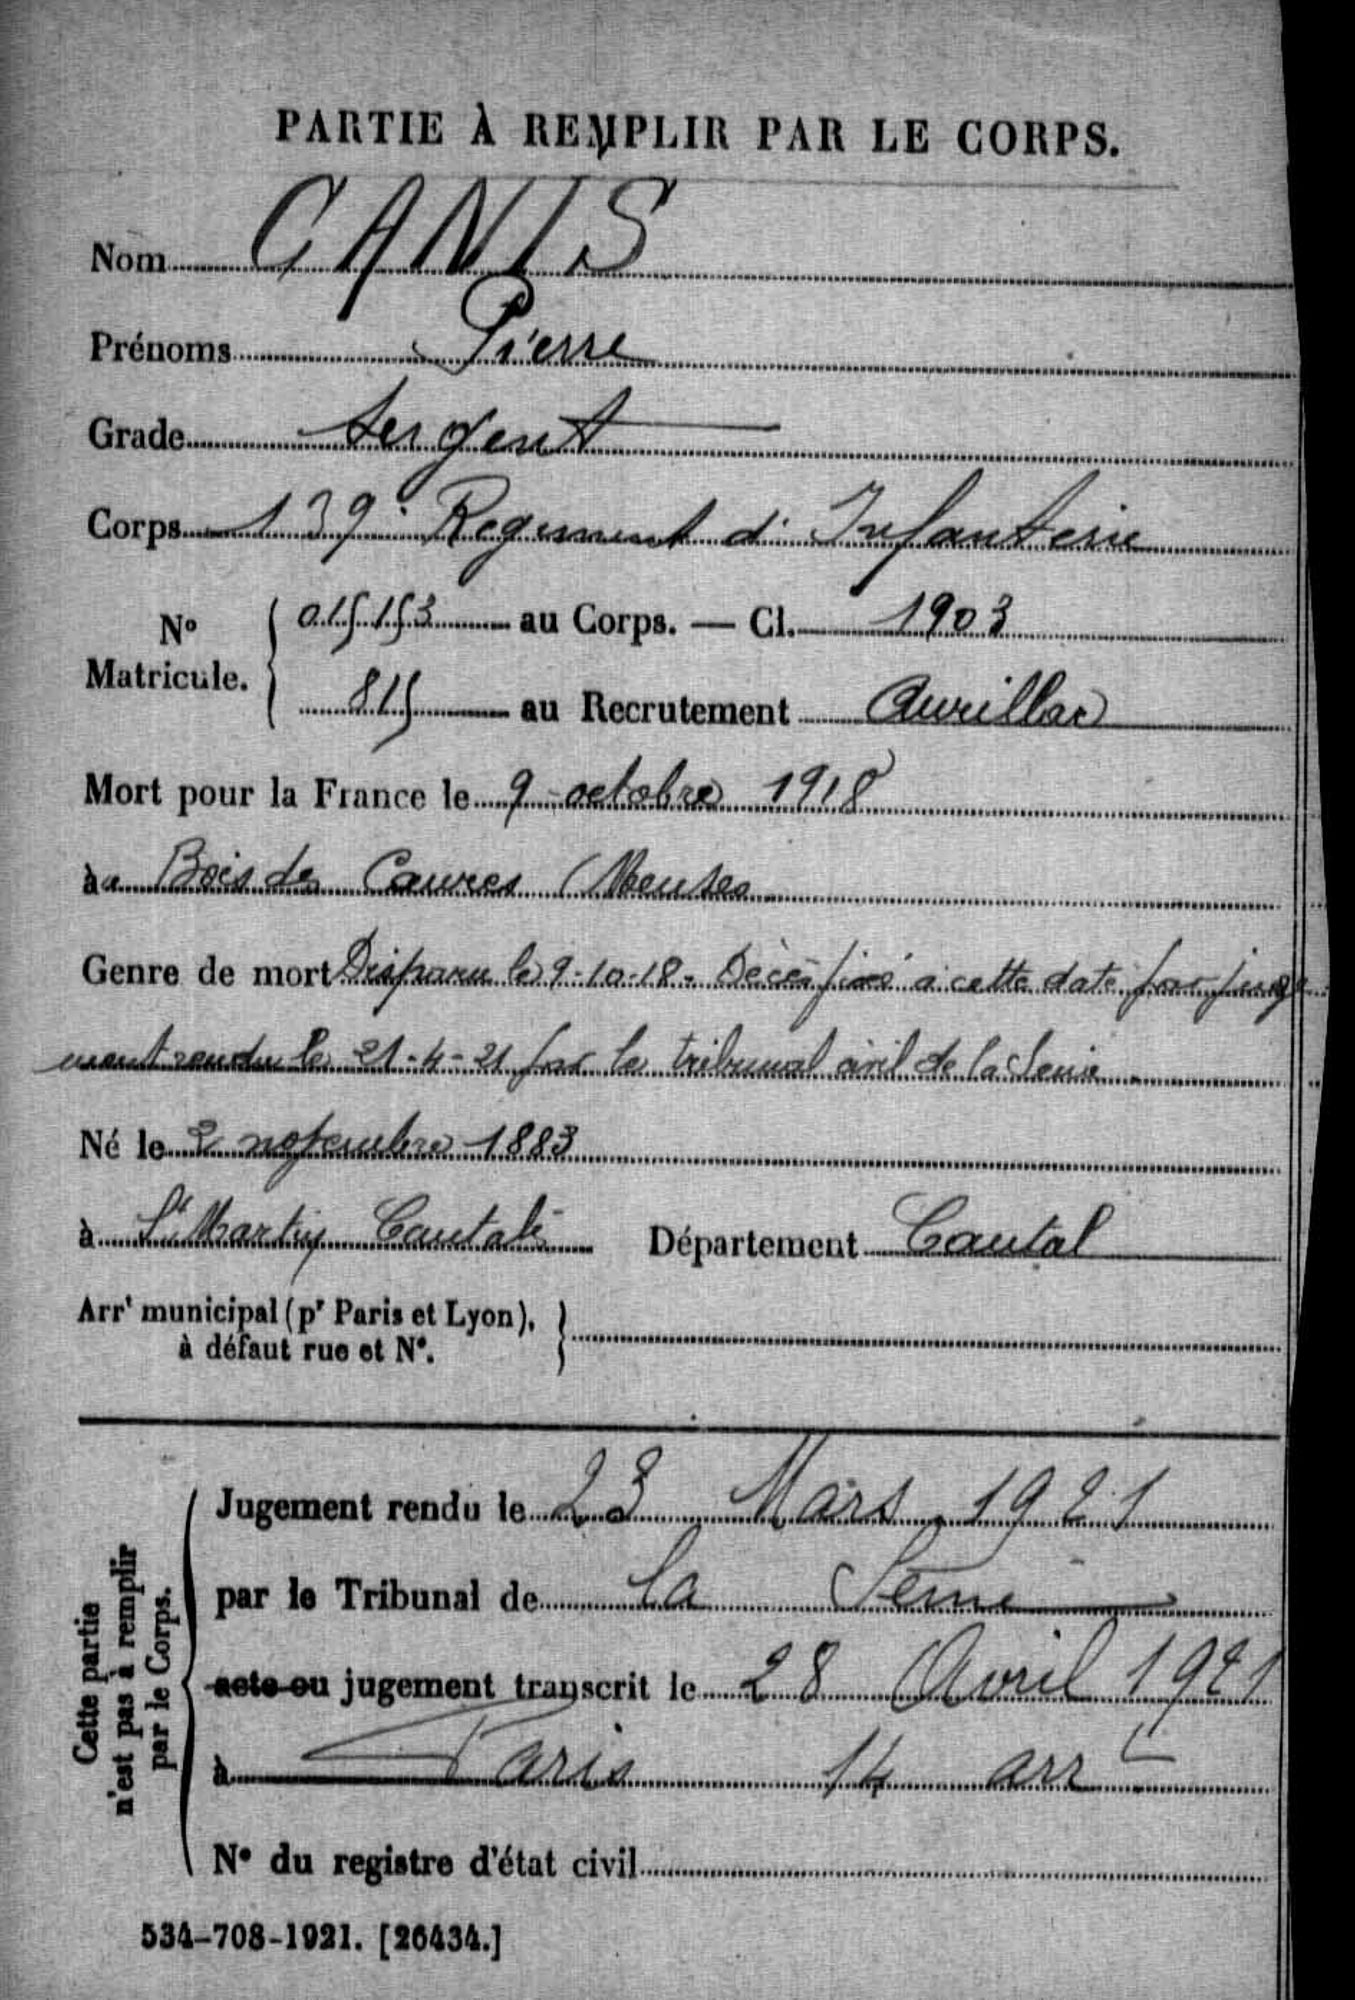 PARTIE À REMPLIR PAR LE CORPS.
Nom CANIS
Prénoms Pierre
Grade Sergent
Corps 139e Regiment d'Infanterie
N° Matricule. { 015153 au Corps. — Cl. 1903
815 au Recrutement Aurillac
Mort pour la France le 9 octobre 1918
à Bois des Caures (Meuse)
Genre de mort Disparu le 9-10-18- Décès fixé à cette date par juge
ment rendu le 21-4-21 par le tribunal civil de la Seine
Né le 2 novembre 1883
à St Martin Cantalès Département Cantal
Arrt municipal (pr Paris et Lyon), à défaut rue et N°. }
Cette partie n'est pas à remplir par le Corps.
Jugement rendu le 23 Mars 1921
par le Tribunal de la Seine
acte ou jugement transcrit le 28 Avril 1921
à Paris 14 arrt
N° du registre d'état civil
534-708-1921. [26434.]